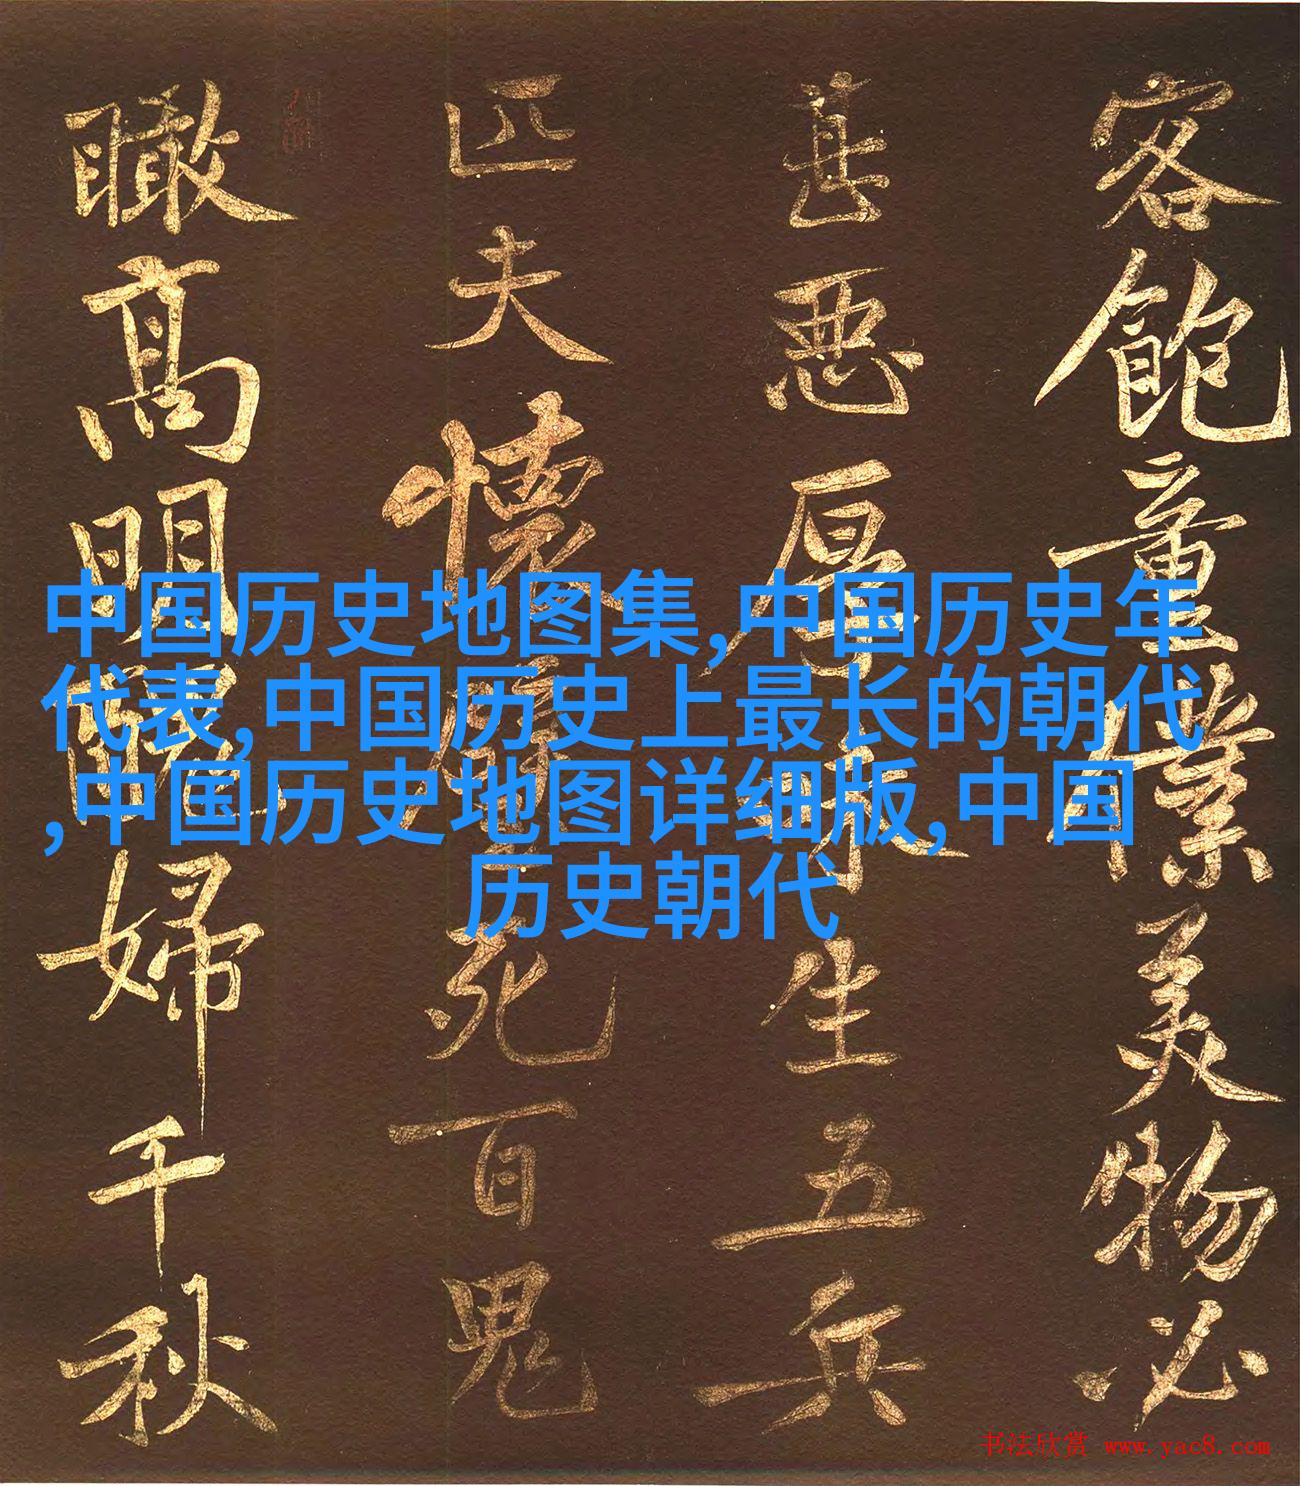 中国历史地图集,中国历史年
代表,中国历史上最长的朝代
,中国历史地图详细版,中国
历史朝代
客飽童僕美物必
甚惡厚味生五兵
匹夫懷死百鬼
瞰高明婦千秋
书法欣赏 www.yac8.com